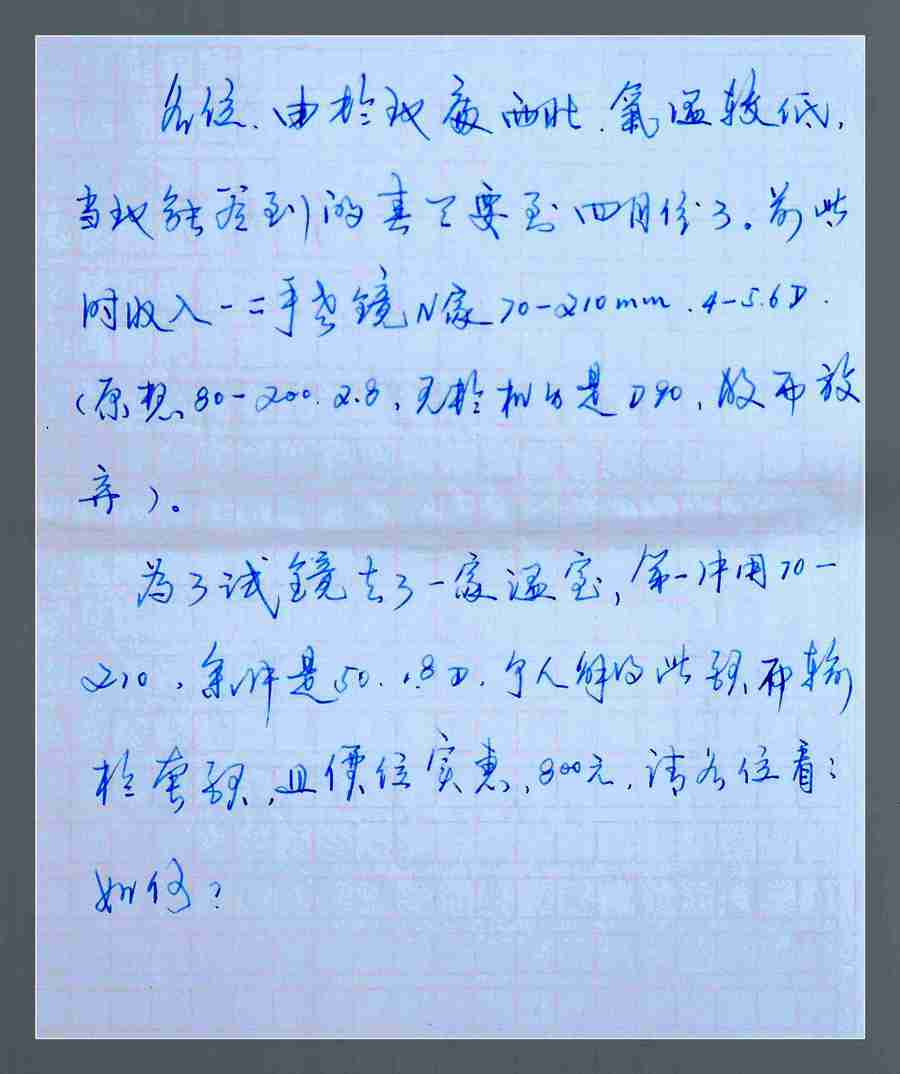 各位、由於我處西北、氣温较低,
当我能看到的春天要到四月份了。前些
时收入一二手老鏡N家70-210mm.4-5.6D.
(原想80-200.2.8,无於机身是D90,故而放
弃)。
为了试鏡去了一家温室,第一冲用70-
210,条件是50.1.8D.个人觉得此头不输
於套头,且價位实惠,800元,请各位看:
如何?